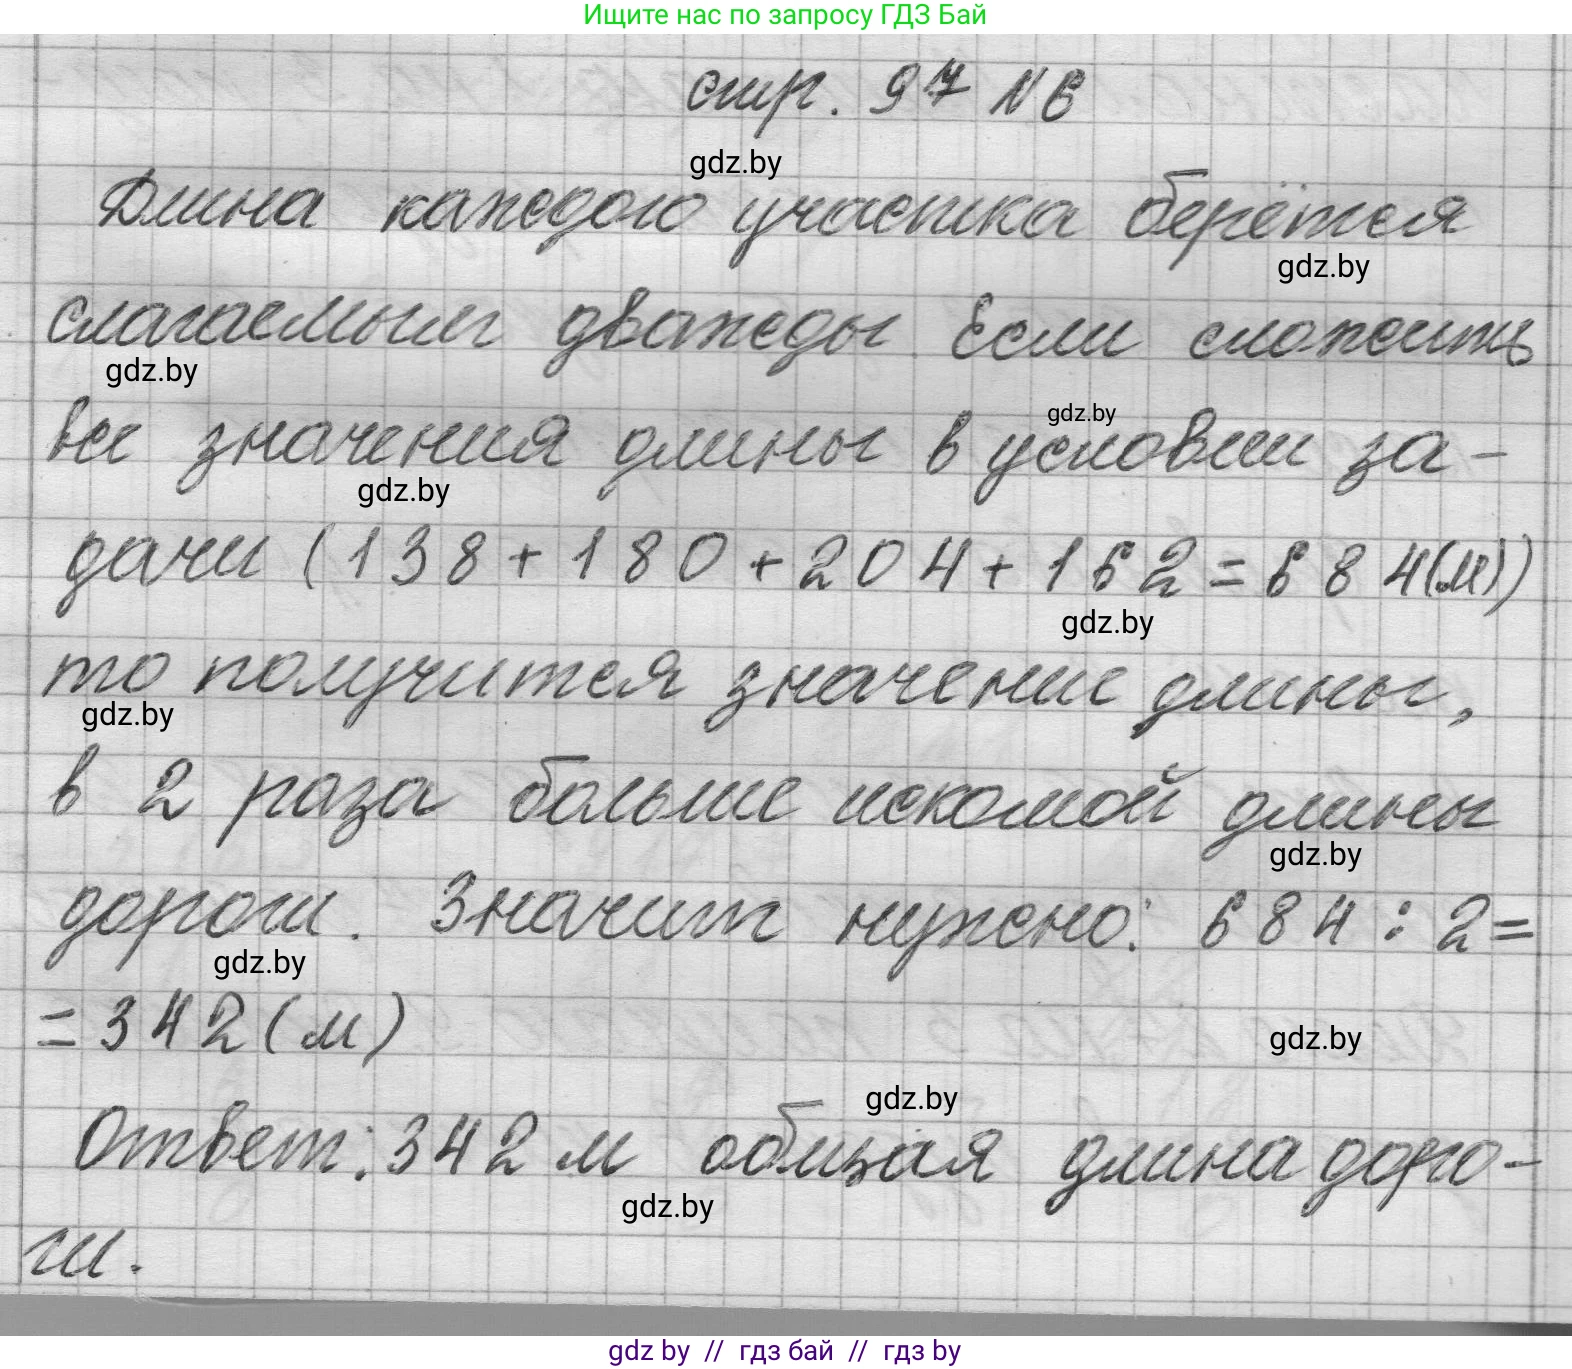 Ищите нас по запросу ГДЗ Бай
стр. 97 N 6
gdz.by
Длина каждого участка берётся
gdz.by
слагаемым дважды. Если сложить
gdz.by
все значения длины в условии за-
gdz.by
gdz.by
дачи (138+180+204+162=684(м))
gdz.by
то получится значение длины,
gdz.by
в 2 раза больше искомой длины
gdz.by
дороги. Значит нужно: 684:2=
gdz.by
=342(м)
gdz.by
gdz.by
Ответ: 342 м общая длина доро-
gdz.by
ги.
gdz.by // гдз бай // гдз by